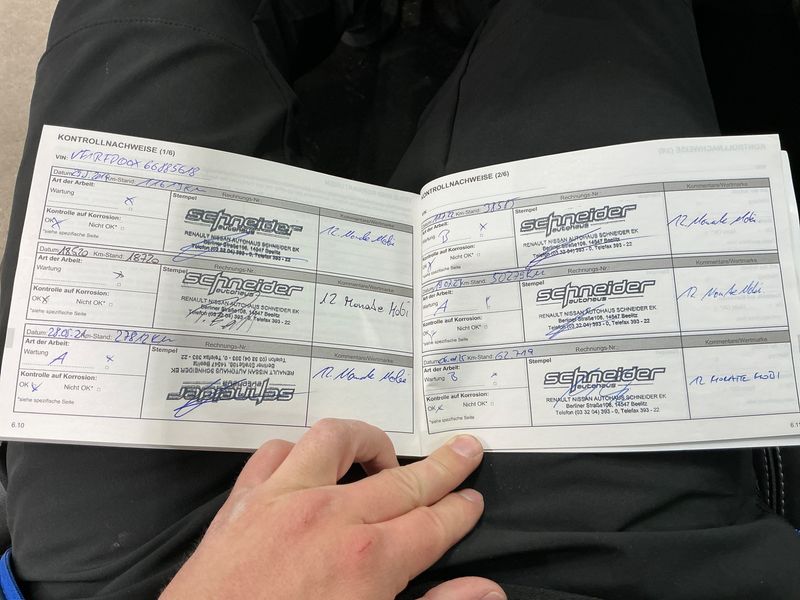 KONTROLLNACHWEISE (1/6)
VIN:
Datum: Km-Stand:
Art der Arbeit: Rechnungs-Nr.:
Wartung x
Stempel
Kommentare/Wertmarke
schneider
autohaus
RENAULT NISSAN AUTOHAUS SCHNEIDER EK
Berliner Straße106, 14547 Beelitz
Telefon (03 32 04) 393 - 0, Telefax 393 - 22
12 Monate Mobi
Kontrolle auf Korrosion:
OK x Nicht OK*
*siehe spezifische Seite
Datum: 18520 Km-Stand: 18720
Art der Arbeit: Rechnungs-Nr.:
Wartung x
Stempel
Kommentare/Wertmarke
schneider
autohaus
RENAULT NISSAN AUTOHAUS SCHNEIDER EK
Berliner Straße106, 14547 Beelitz
Telefon (03 32 04) 393 - 0, Telefax 393 - 22
12 Monate Mobi
Kontrolle auf Korrosion:
OK x Nicht OK*
*siehe spezifische Seite
Datum: 28.05.21 Km-Stand:
Art der Arbeit: Rechnungs-Nr.:
Wartung A x
Stempel
Kommentare/Wertmarke
schneider
autohaus
RENAULT NISSAN AUTOHAUS SCHNEIDER EK
Berliner Straße106, 14547 Beelitz
Telefon (03 32 04) 393 - 0, Telefax 393 - 22
12 Monate Mobi
Kontrolle auf Korrosion:
OK x Nicht OK*
*siehe spezifische Seite
6.10
KONTROLLNACHWEISE (2/6)
Km-Stand:
Art der Arbeit: Rechnungs-Nr.:
Wartung B x
Stempel
Kommentare/Wertmarke
schneider
autohaus
RENAULT NISSAN AUTOHAUS SCHNEIDER EK
Berliner Straße106, 14547 Beelitz
Telefon (03 32 04) 393 - 0, Telefax 393 - 22
12 Monate Mobi.
Kontrolle auf Korrosion:
Nicht OK*
*siehe spezifische Seite
Km-Stand: 50275km
Art der Arbeit: Rechnungs-Nr.:
Wartung A
Stempel
Kommentare/Wertmarke
schneider
autohaus
RENAULT NISSAN AUTOHAUS SCHNEIDER EK
Berliner Straße106, 14547 Beelitz
Telefon (03 32 04) 393 - 0, Telefax 393 - 22
12 Monate Mobi.
Kontrolle auf Korrosion:
Nicht OK*
*siehe spezifische Seite
Km-Stand: 62719
Art der Arbeit: Rechnungs-Nr.:
Wartung B x
Stempel
Kommentare/Wertmarke
schneider
autohaus
RENAULT NISSAN AUTOHAUS SCHNEIDER EK
Berliner Straße106, 14547 Beelitz
Telefon (03 32 04) 393 - 0, Telefax 393 - 22
12 MONATE MOBI
Kontrolle auf Korrosion:
OK x Nicht OK*
*siehe spezifische Seite